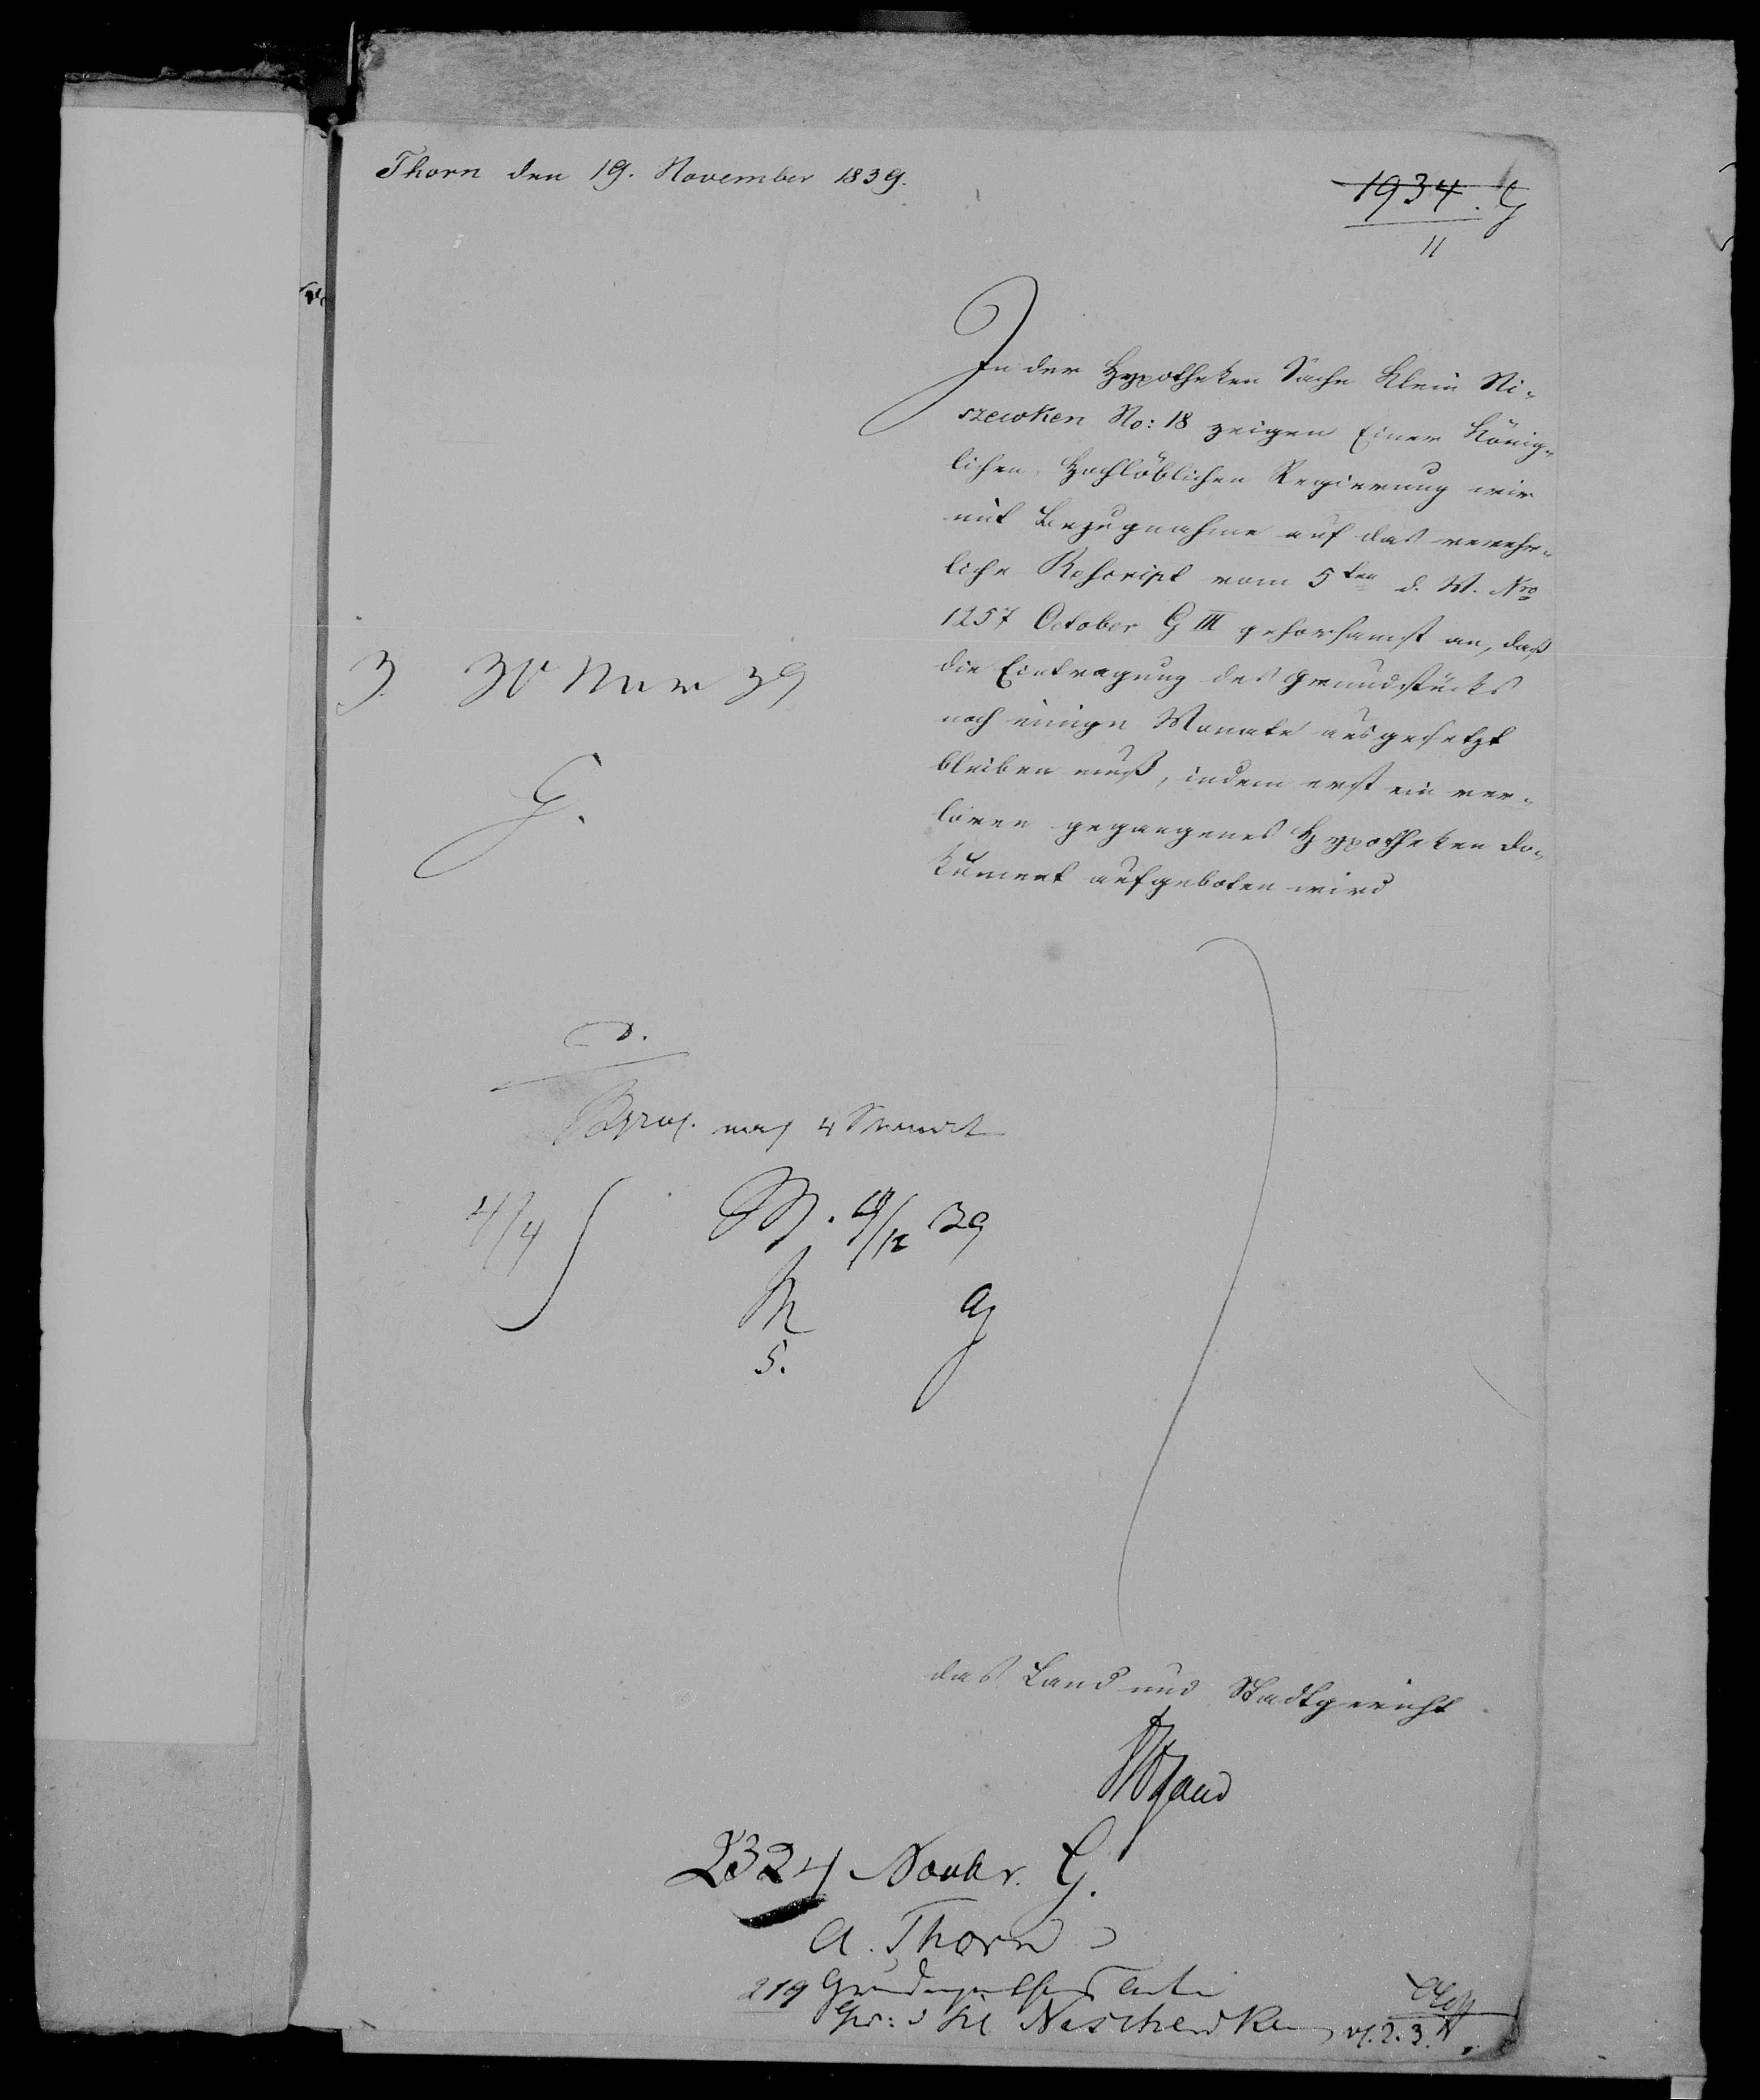 Thorn den 19. November 1839.
1934. G
11
In der Hypotheken Sache Klein Ni-
szewken No: 18 zeigen Einer König-
lichen Hochlöblichen Regierung wir
mit Bezugnahme auf das verehr-
liche Rescript vom 5ten d. M. Nro
1257 October G III gehorsamst an, daß
die Eintragung des Grundstücks
noch einige Monate ausgesetzt
bleiben muß, indem erst ein ver-
loren gegangenes Hypotheken Do-
kument aufgeboten wird
3. 30 Nov 39
G.
nach 4
4/4
/12 39
5.
das Land und Stadtgericht
2324 Novbr. G.
a. Thorn
219
Kl Neschewken